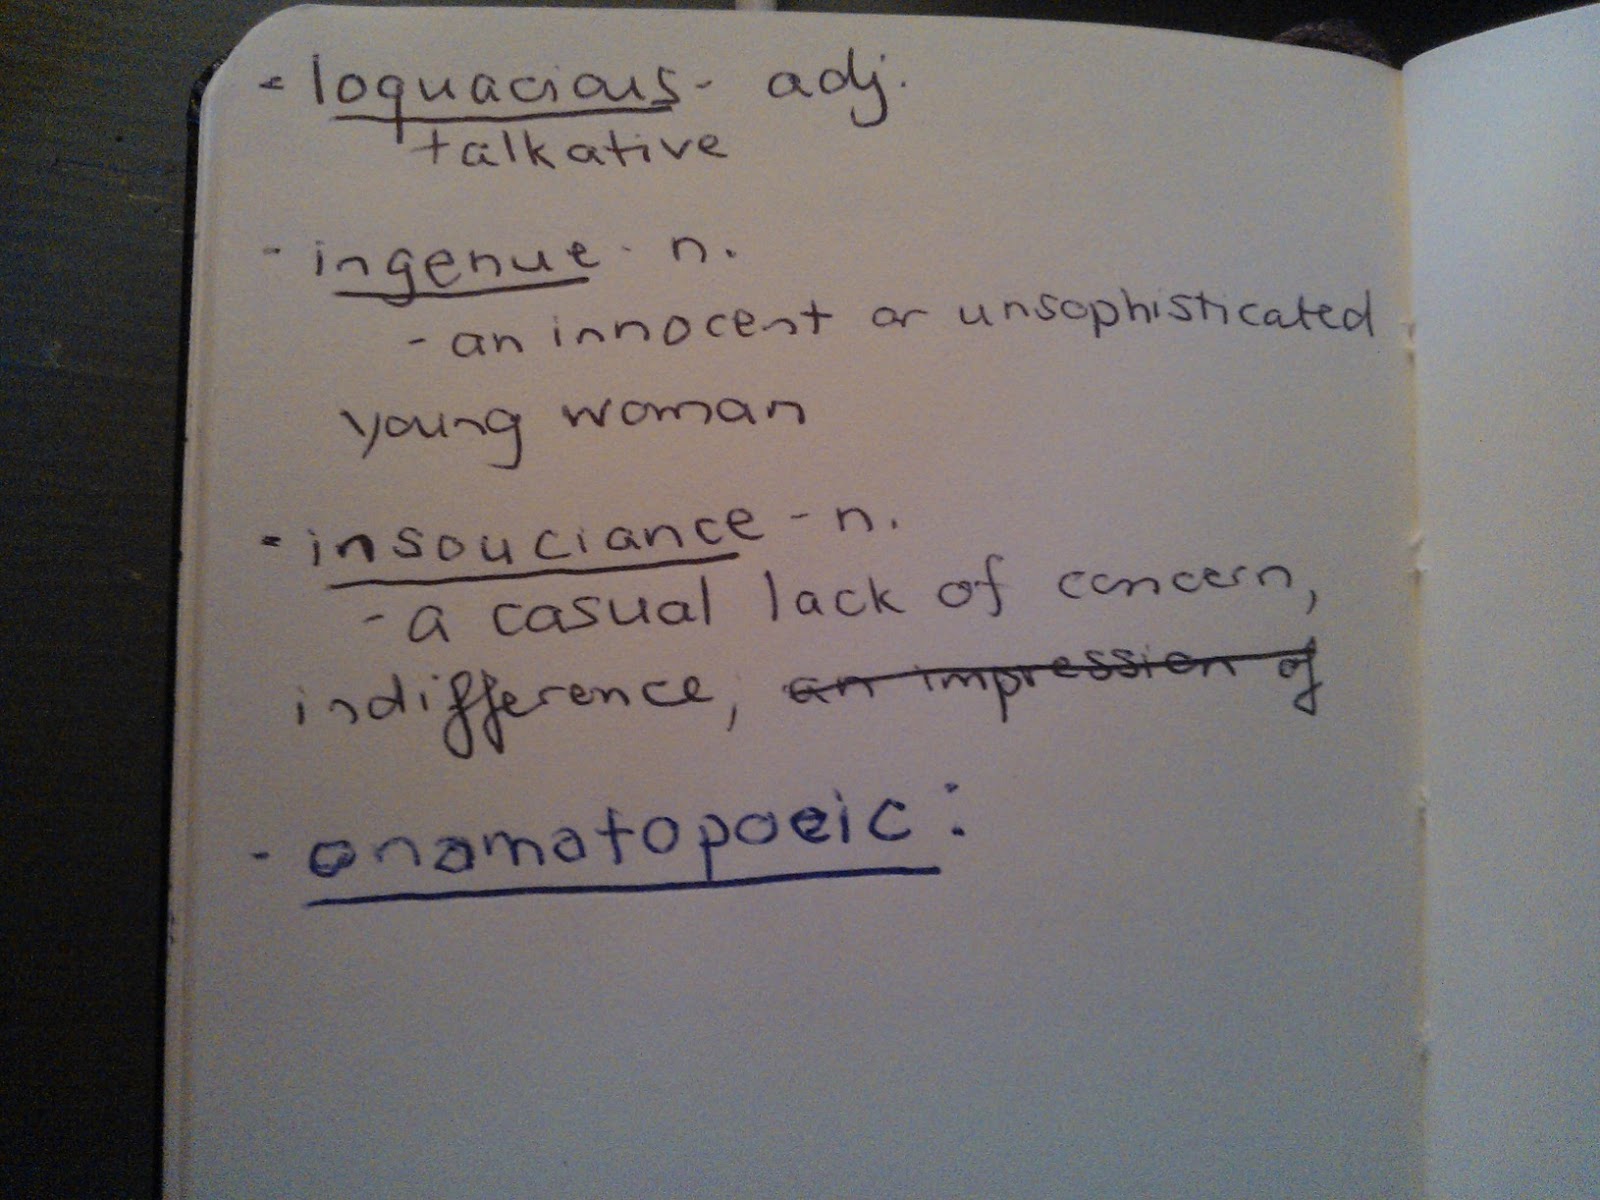 - loquacious - adj.
talkative
- ingenue - n.
- an innocent or unsophisticated
young woman
- insouciance - n.
- a casual lack of concern,
indifference, an impression of
- onomatopoeic :